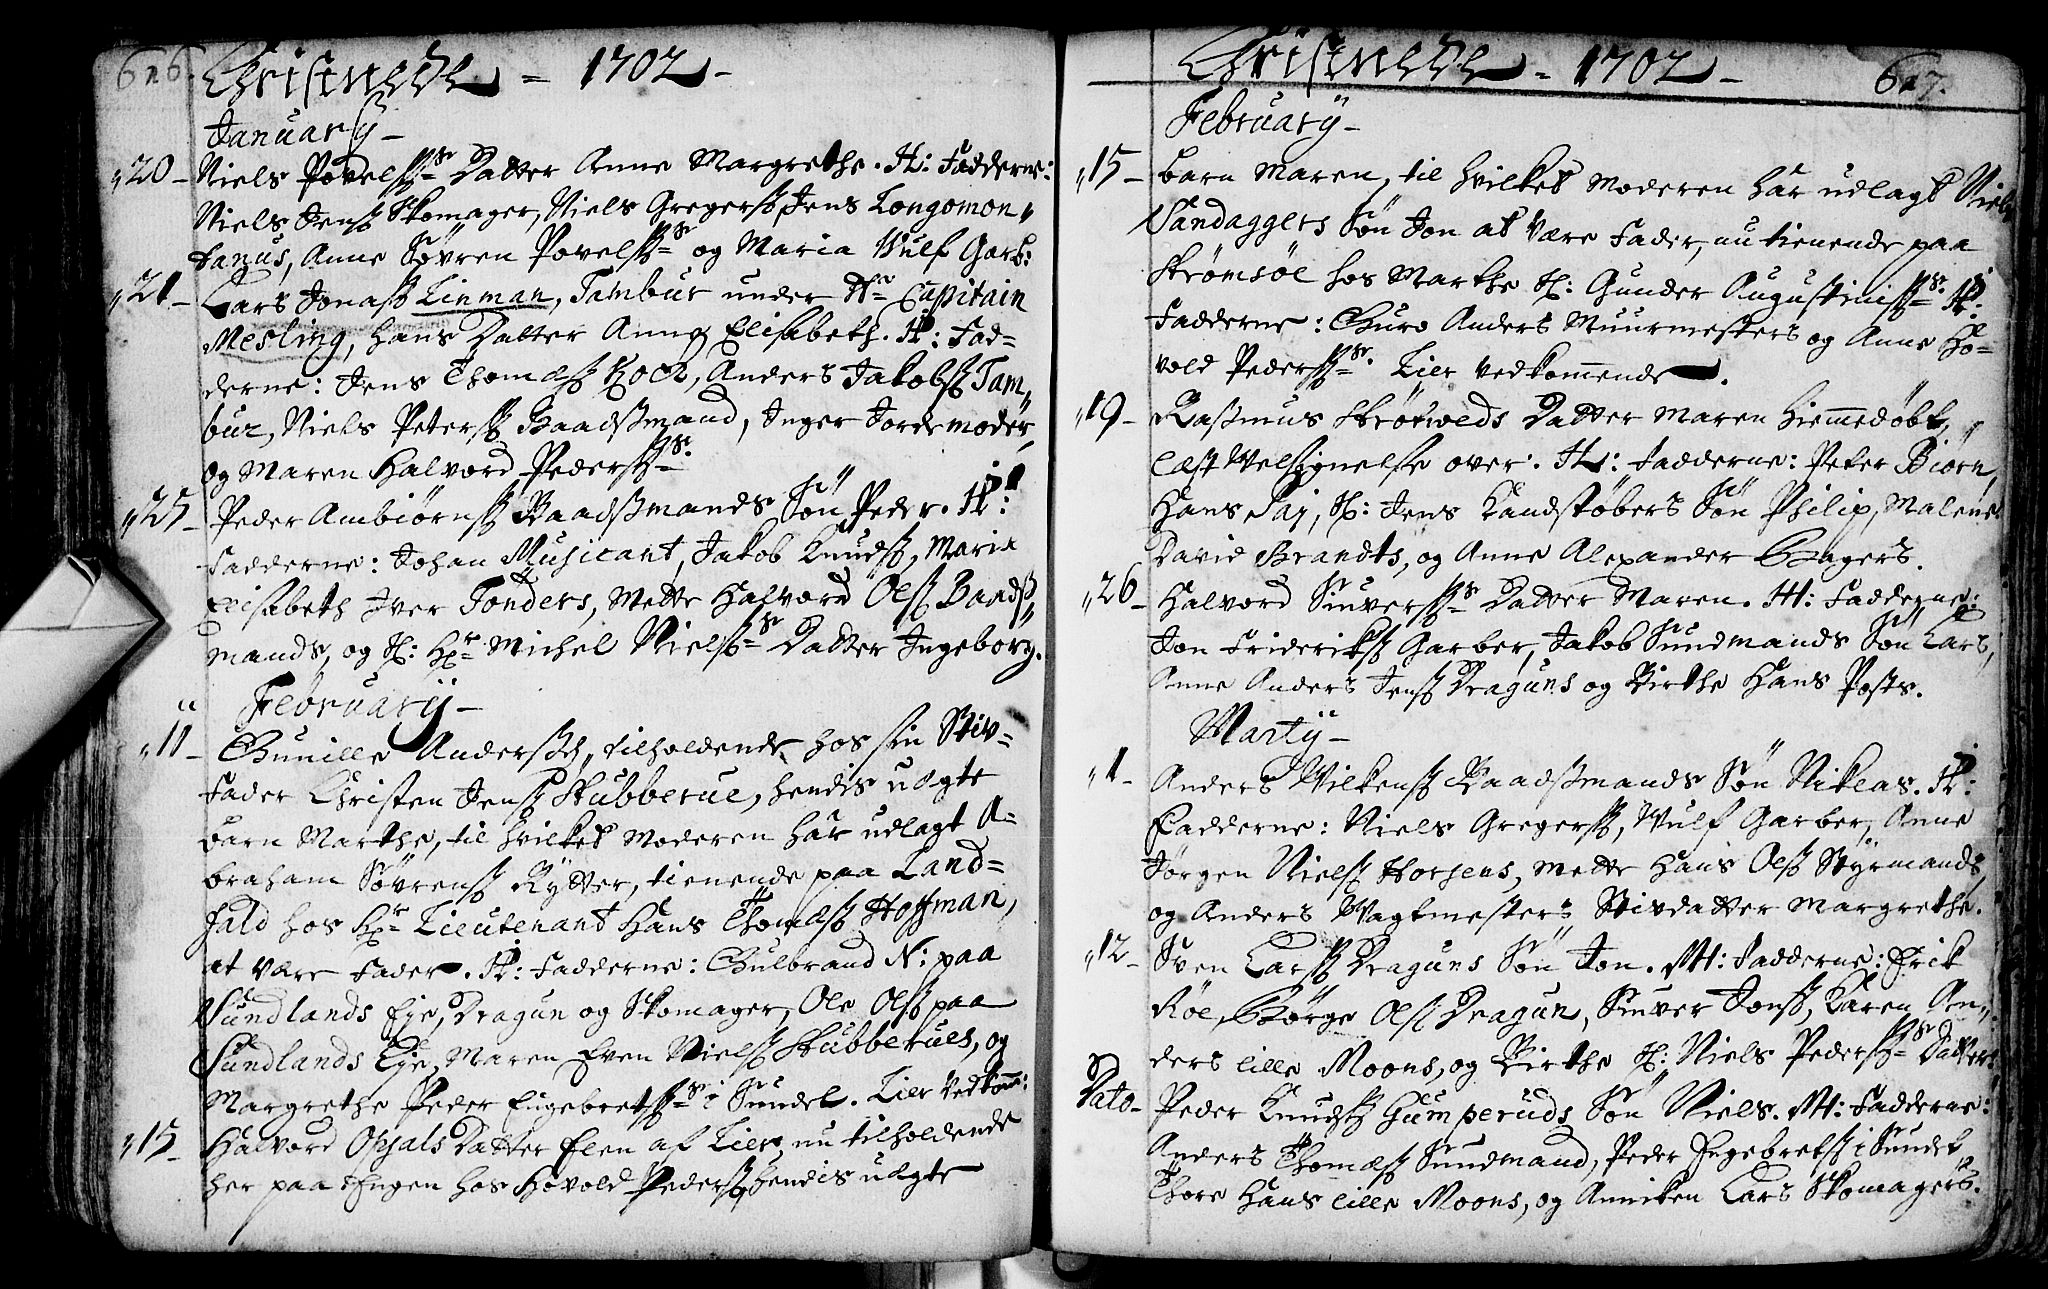 626. Christnede = 1702 -
January -
20 - Niels Povelssøns Datter Anne Margrethe. H: Fadderne:
Niels Jenss Skomager, Niels Gregerss, Jens Longomon„
tanus, Anne Søvren Povelss og Maria Wulf Garb:
21 - Lars Jonass Linman, Tambur under Hr Capitain
Mesling, hans Datter Anne Elisabeth. H: Fad=
derne: Jens Thomæss Kock, Anders Jakobss Tam„
bur, Niels Peterss Baadssmand, Inger Jordemoder,
og Maren Halvord Pederss.
25 - Peder Ambiørnss Baadssmands Søn Peder. H:
Fadderne: Johan Musicant, Jakob Knudss, Maria
Elisabeth Iver Tonders, Mette Halvord Olss Baadss„
mands, og Sl: Hr Michel Nielss Datter Ingeborg.
February -
11 - Gunille Anderssd, tilholdende hos sin Stiv=
fader Christen Jenss Skubberue, hendis uægte
barn Marthe, til hvilket Moderen har udlagt A=
braham Søvrenss Rytter, tienende paa Land=
fald hos Hr Lieutenant Hans Thomæss Hoffman,
at være Fader. H: Fadderne: Gulbrand N: paa
Sundlands Eje, Dragun og Skomager, Ole Olss paa
Sundlands Eje, Maren Even Nielss Skubberues, og
Margrethe Peder Engebretss i Sundet. Lier Vedkom:
15 - Halvord Opsals Datter Elen af Lier, nu tilholdende
her paa Engen hos Hovold Pederss, hendis uægte
Christnede = 1702 - 627.
February -
15 - barn Maren, til hvilket Moderen har udlagt Niels
Sandaggers Søn Jon at være Fader, nu tienende paa
Strømsøe hos Marthe Sl: Gunder Augustiniss. H:
Fadderne: Guro Anders Muurmesters og Anne Ho=
vold Pederss. Lier vedkommende.
19 - Rassmus Skrøtweds Datter Maren hiemmedøbt,
læst Velsignelse over. H: Fadderne: Peter Biørn,
Hans Saj, Sl: Jens Kandstøbers Søn Philip, Malene
David Brandts, og Anne Alexander Bagers.
26 - Halvord Siuverss Datter Maren. H: Fadderne:
Jon Frideriks Garber, Jakob Sundmands Søn Lars,
Anne Anders Jenss Draguns og Birthe Hans Posts.
Marty -
1 - Anders Wilkenss Baadssmands Søn Niklas. H:
Fadderne: Niels Gregerss, Wulf Garber, Anne
Jørgen Nielss Horsens, Mette Hans Olss Styrmands,
og Anders Wagtmesters Stivdatter Margrethe.
12 - Sven Larss Draguns Søn Jon. H: Fadderne: Erik
Røe, Børge Olss Dragun, Siuver Jonss, Karen An„
ders lille Moons, og Birthe Sl: Niels Pederss Datter.
Dato - Peder Knudss Gumperuds Søn Niels. H: Fadderne:
Anders Thomæss Sundmand, Peder Engebretss i Sundet
Thore Hans lille Moons, og Anniken Lars Skomagers.